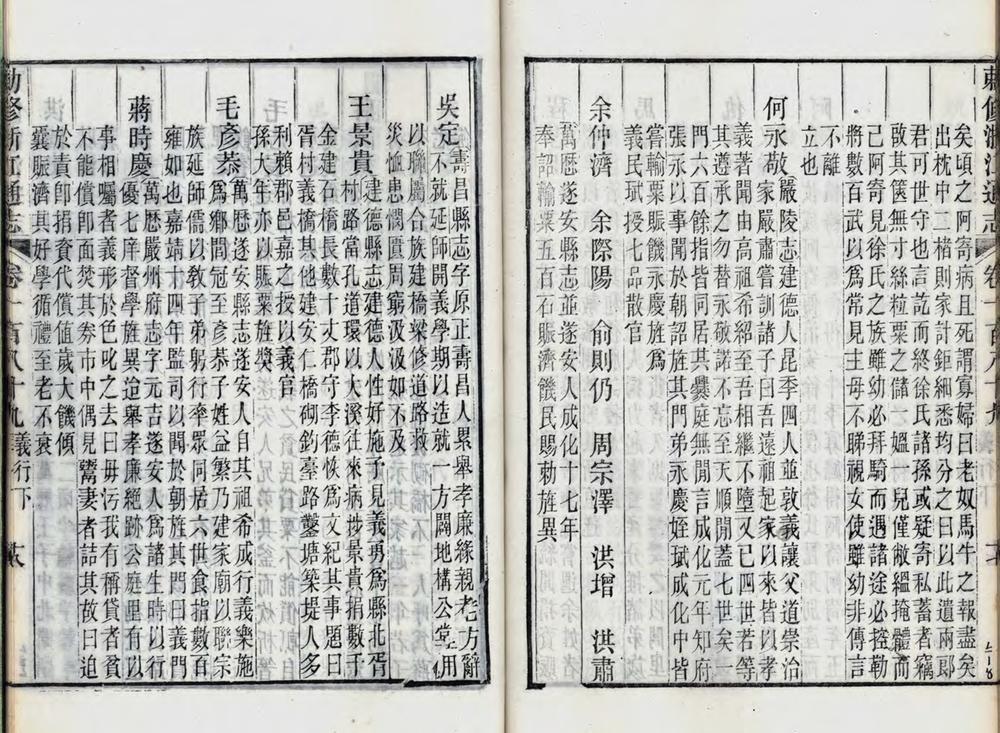 勅修浙江通志 卷一百八十九 義行下
矣頃之阿寄病且死謂寡婦曰老奴馬牛之報盡矣
出枕中二楮則家計鉅細悉均分之曰以此遺兩郎
君可世守也言訖而終徐氏諸孫或疑寄私蓄者竊
啟其篋無寸絲粒粟之儲一媼一兒僅敝縕掩體而
已阿寄見徐氏之族雖幼必拜騎而遇諸途必控勒
將數百武以爲常見主母不睇視女使雖幼非傳言
不離立也
何永敬 嚴陵志建德人昆季四人並敦義讓父道崇治
家嚴肅嘗訓諸子曰吾遠祖起家以來皆以孝
義著聞由高祖希紹至吾相繼不墮又已四世若等
其遵承之勿替永敬諾不忘至天順間蓋七世矣一
門六百餘指皆同居其爨庭無間言成化元年知府
張永以事聞於朝詔旌其門弟永慶姪珷成化中皆
嘗輸粟賑饑永慶旌爲
義民珷授七品散官
余仲濟 余際陽 俞則仍 周宗澤 洪增 洪肅
萬厯遂安縣志並遂安人成化十七年
奉詔輸粟五百石賑濟饑民賜勅旌異
吳定 壽昌縣志字原正壽昌人累舉孝廉緣親老方辭
不就延師開義學期以造就一方闢地構公堂用
以聯屬合族建橋梁修道路救
災恤患憫匱周窮汲汲如不及
王景貴 建德縣志建德人性好施予見義勇爲縣北胥
村路當孔道環以大溪往來病涉景貴捐數千
金建石橋長數十丈郡守李德恢爲文紀其事題曰
胥村義橋其他建安仁橋砌釣臺路鑿塘築堤人多
利賴郡邑嘉之授以義官
孫大年亦以賑粟旌獎
毛彥恭 萬厯遂安縣志遂安人自其祖希成行義樂施
爲鄉閭冠至彥恭子姓益繁乃建家廟以聯宗
族延師儒以教子弟躬行率眾同居六世食指數百
雍如也嘉靖十四年監司以聞於朝旌其門曰義門
蔣時慶 萬厯嚴州府志字元吉遂安人爲諸生時以行
優七庠督學旌異迨舉孝廉絕跡公庭里有以
事相囑者義形於色叱之去曰毋污我有稱貸者貧
不能償卽面焚其券市中偶見鬻妻者詰其故曰迫
於責卽捐貲代償值歲大饑傾
囊賑濟其好學循禮至老不衰
勅修浙江通志 卷一百八十九 義行下